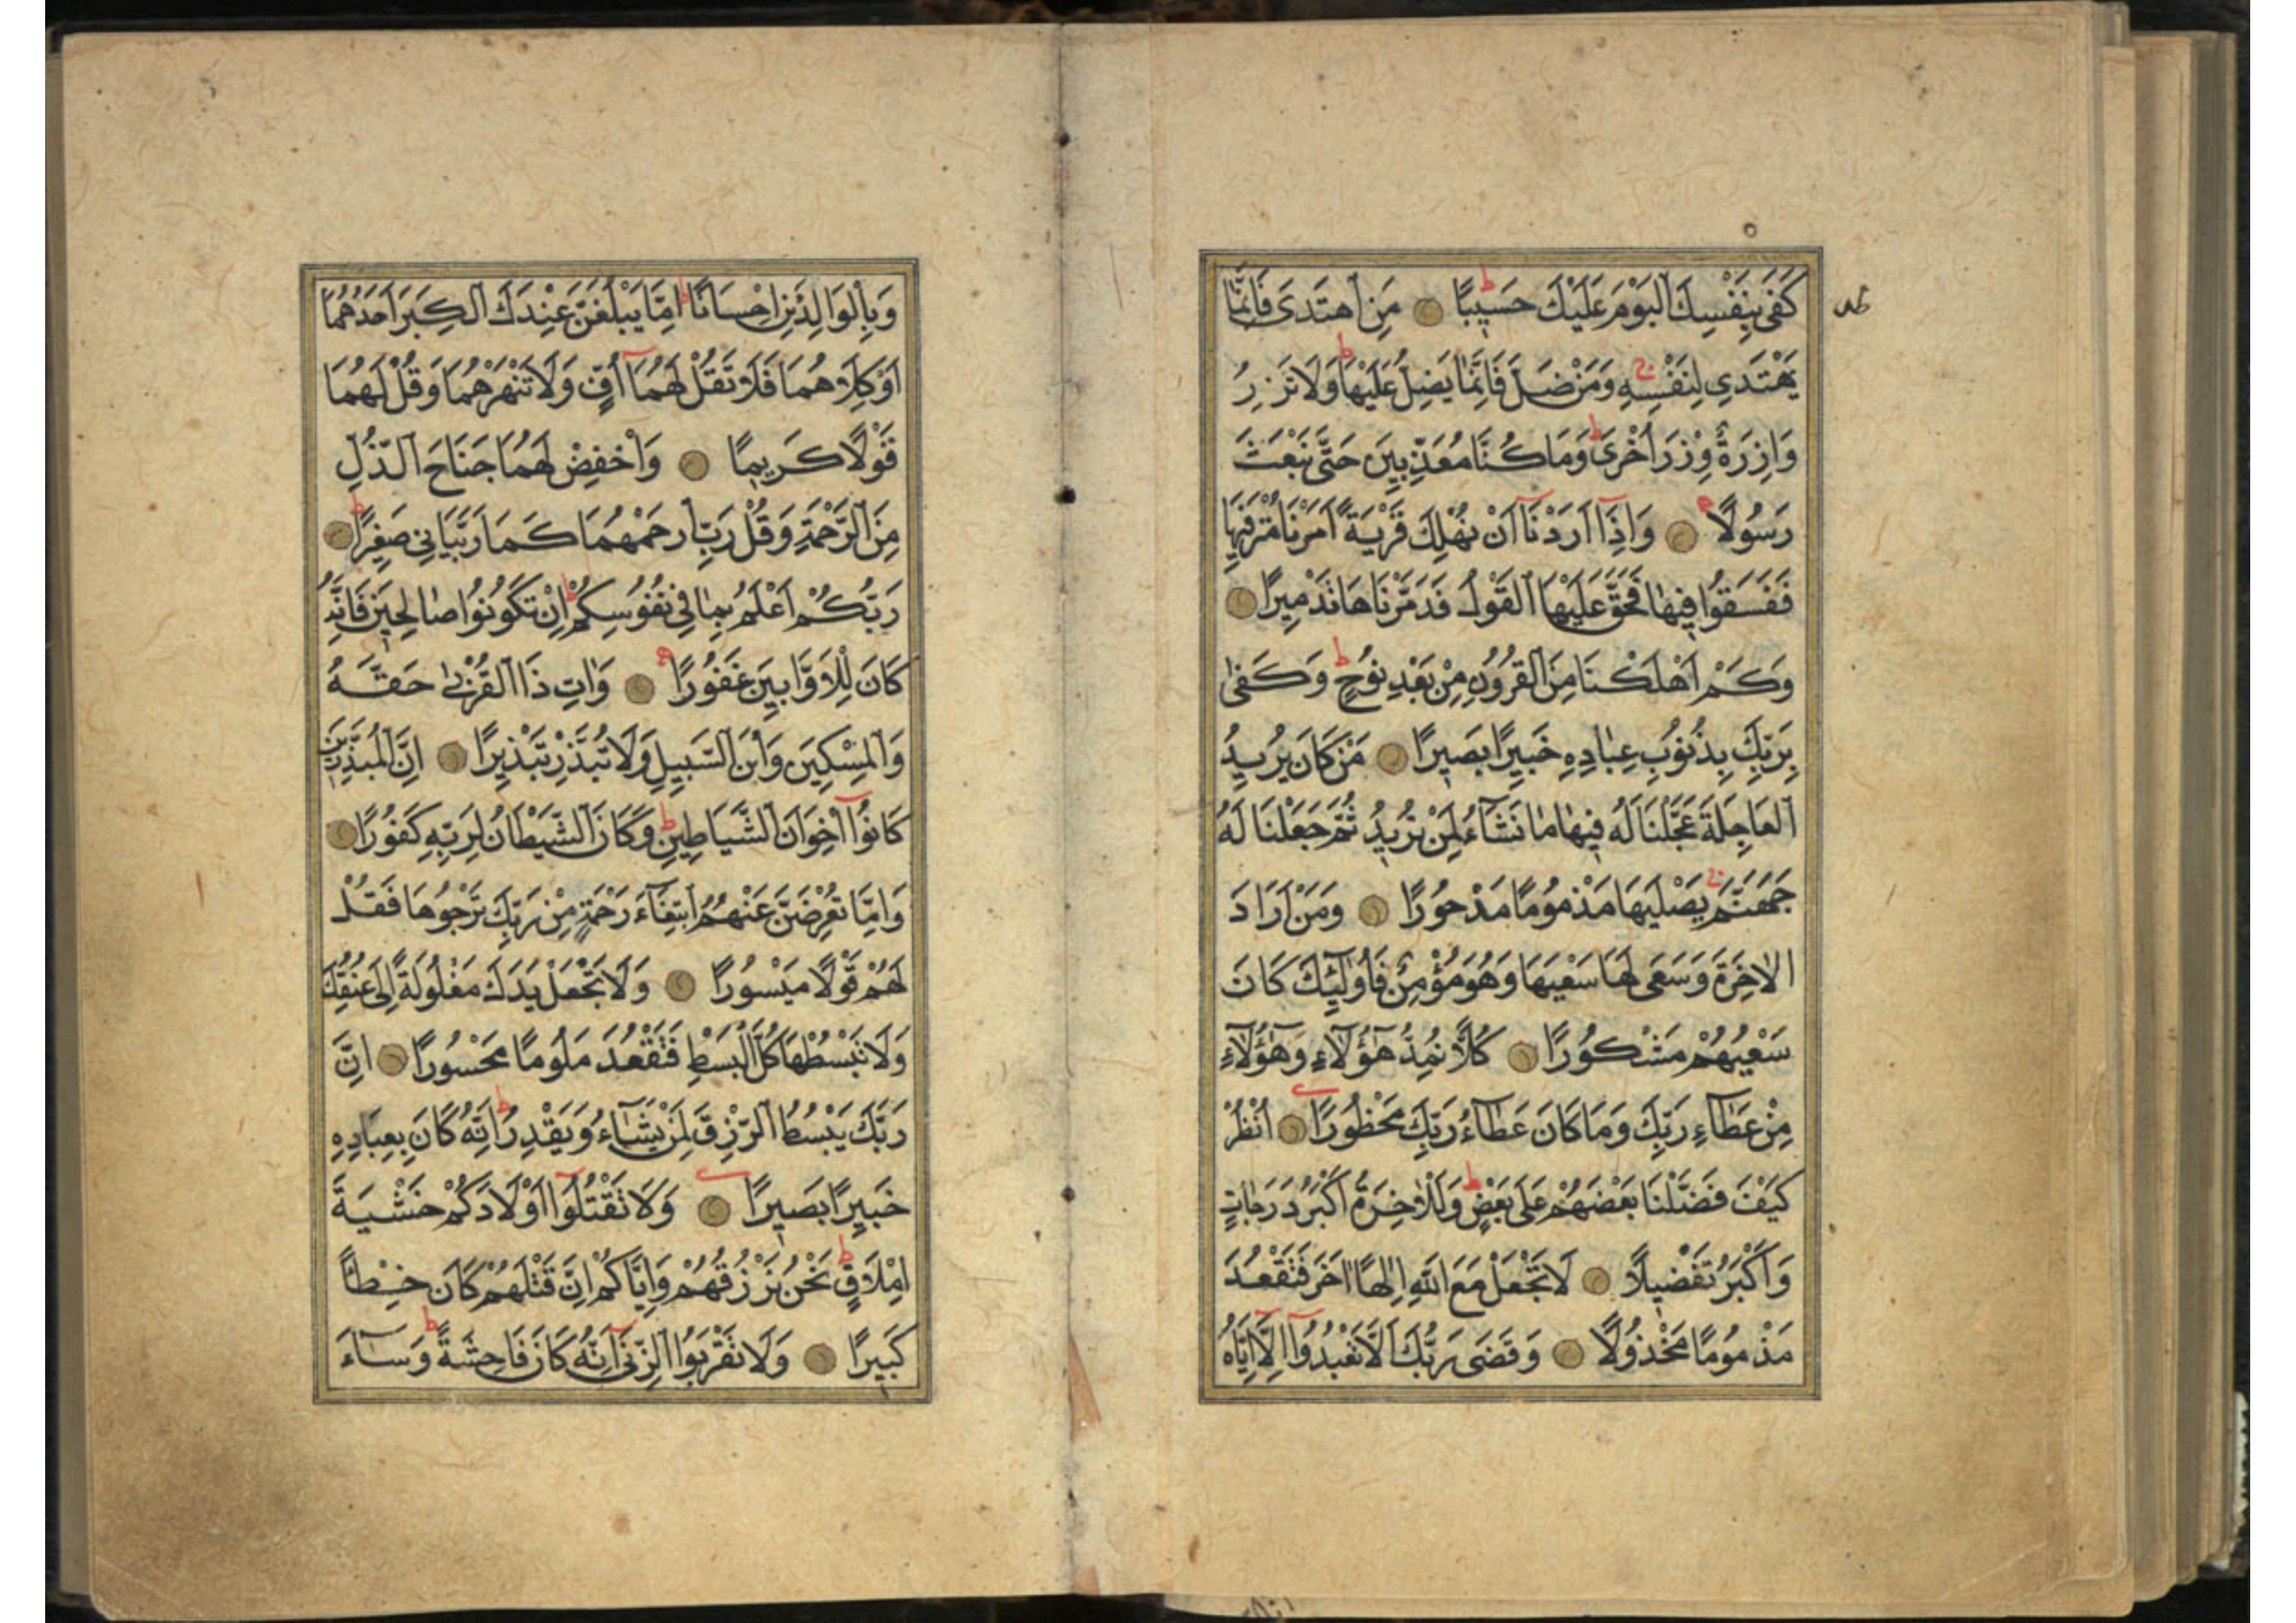 كَفَى بِنَفْسِكَ الْيَوْمَ عَلَيْكَ حَسِيبًا مَنِ اهْتَدَى فَاِنَّمَا
يَهْتَدِي لِنَفْسِهِ وَمَنْ ضَلَّ فَاِنَّمَا يَضِلُّ عَلَيْهَا وَلَا تَزِرُ
وَازِرَةٌ وِزْرَ اُخْرَى وَمَا كُنَّا مُعَذِّبِينَ حَتَّى نَبْعَثَ
رَسُولًا وَاِذَا اَرَدْنَا اَنْ نُهْلِكَ قَرْيَةً اَمَرْنَا مُتْرَفِيهَا
فَفَسَقُوا فِيهَا فَحَقَّ عَلَيْهَا الْقَوْلُ فَدَمَّرْنَاهَا تَدْمِيرًا
وَكَمْ اَهْلَكْنَا مِنَ الْقُرُونِ مِنْ بَعْدِ نُوحٍ وَكَفَى
بِرَبِّكَ بِذُنُوبِ عِبَادِهِ خَبِيرًا بَصِيرًا مَنْ كَانَ يُرِيدُ
الْعَاجِلَةَ عَجَّلْنَا لَهُ فِيهَا مَا نَشَآءُ لِمَنْ نُرِيدُ ثُمَّ جَعَلْنَا لَهُ
جَهَنَّمَ يَصْلَيهَا مَذْمُومًا مَدْحُورًا وَمَنْ اَرَادَ
الْاٰخِرَةَ وَسَعَى لَهَا سَعْيَهَا وَهُوَ مُؤْمِنٌ فَاُولٰٓئِكَ كَانَ
سَعْيُهُمْ مَشْكُورًا كُلًّا نُمِدُّ هٰٓؤُلَآءِ وَهٰٓؤُلَآءِ
مِنْ عَطَآءِ رَبِّكَ وَمَا كَانَ عَطَآءُ رَبِّكَ مَحْظُورًا اُنْظُرْ
كَيْفَ فَضَّلْنَا بَعْضَهُمْ عَلَى بَعْضٍ وَلَلْاٰخِرَةُ اَكْبَرُ دَرَجَاتٍ
وَاَكْبَرُ تَفْضِيلًا لَا تَجْعَلْ مَعَ اللّٰهِ اِلٰهًا اٰخَرَ فَتَقْعُدَ
مَذْمُومًا مَخْذُولًا وَقَضَى رَبُّكَ اَلَّا تَعْبُدُوا اِلَّا اِيَّاهُ
وَبِالْوَالِدَيْنِ اِحْسَانًا اِمَّا يَبْلُغَنَّ عِنْدَكَ الْكِبَرَ اَحَدُهُمَا
اَوْ كِلَاهُمَا فَلَا تَقُلْ لَهُمَا اُفٍّ وَلَا تَنْهَرْهُمَا وَقُلْ لَهُمَا
قَوْلًا كَرِيمًا وَاخْفِضْ لَهُمَا جَنَاحَ الذُّلِّ
مِنَ الرَّحْمَةِ وَقُلْ رَبِّ ارْحَمْهُمَا كَمَا رَبَّيَانِي صَغِيرًا
رَبُّكُمْ اَعْلَمُ بِمَا فِي نُفُوسِكُمْ اِنْ تَكُونُوا صَالِحِينَ فَاِنَّهُ
كَانَ لِلْاَوَّابِينَ غَفُورًا وَاٰتِ ذَا الْقُرْبَى حَقَّهُ
وَالْمِسْكِينَ وَابْنَ السَّبِيلِ وَلَا تُبَذِّرْ تَبْذِيرًا اِنَّ الْمُبَذِّرِينَ
كَانُوا اِخْوَانَ الشَّيَاطِينِ وَكَانَ الشَّيْطَانُ لِرَبِّهِ كَفُورًا
وَاِمَّا تُعْرِضَنَّ عَنْهُمُ ابْتِغَآءَ رَحْمَةٍ مِنْ رَبِّكَ تَرْجُوهَا فَقُلْ
لَهُمْ قَوْلًا مَيْسُورًا وَلَا تَجْعَلْ يَدَكَ مَغْلُولَةً اِلَى عُنُقِكَ
وَلَا تَبْسُطْهَا كُلَّ الْبَسْطِ فَتَقْعُدَ مَلُومًا مَحْسُورًا اِنَّ
رَبَّكَ يَبْسُطُ الرِّزْقَ لِمَنْ يَشَآءُ وَيَقْدِرُ اِنَّهُ كَانَ بِعِبَادِهِ
خَبِيرًا بَصِيرًا وَلَا تَقْتُلُوا اَوْلَادَكُمْ خَشْيَةَ
اِمْلَاقٍ نَحْنُ نَرْزُقُهُمْ وَاِيَّاكُمْ اِنَّ قَتْلَهُمْ كَانَ خِطْـًٔا
كَبِيرًا وَلَا تَقْرَبُوا الزِّنَى اِنَّهُ كَانَ فَاحِشَةً وَسَآءَ